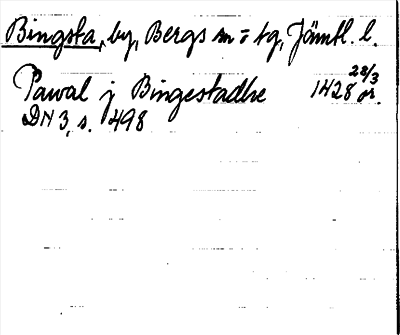 Bingsta, by, Bergs sn = tg, Jämtl. l.
Pawal j Bingestadhe 1428 28/3 or.
DN 3, s. 498